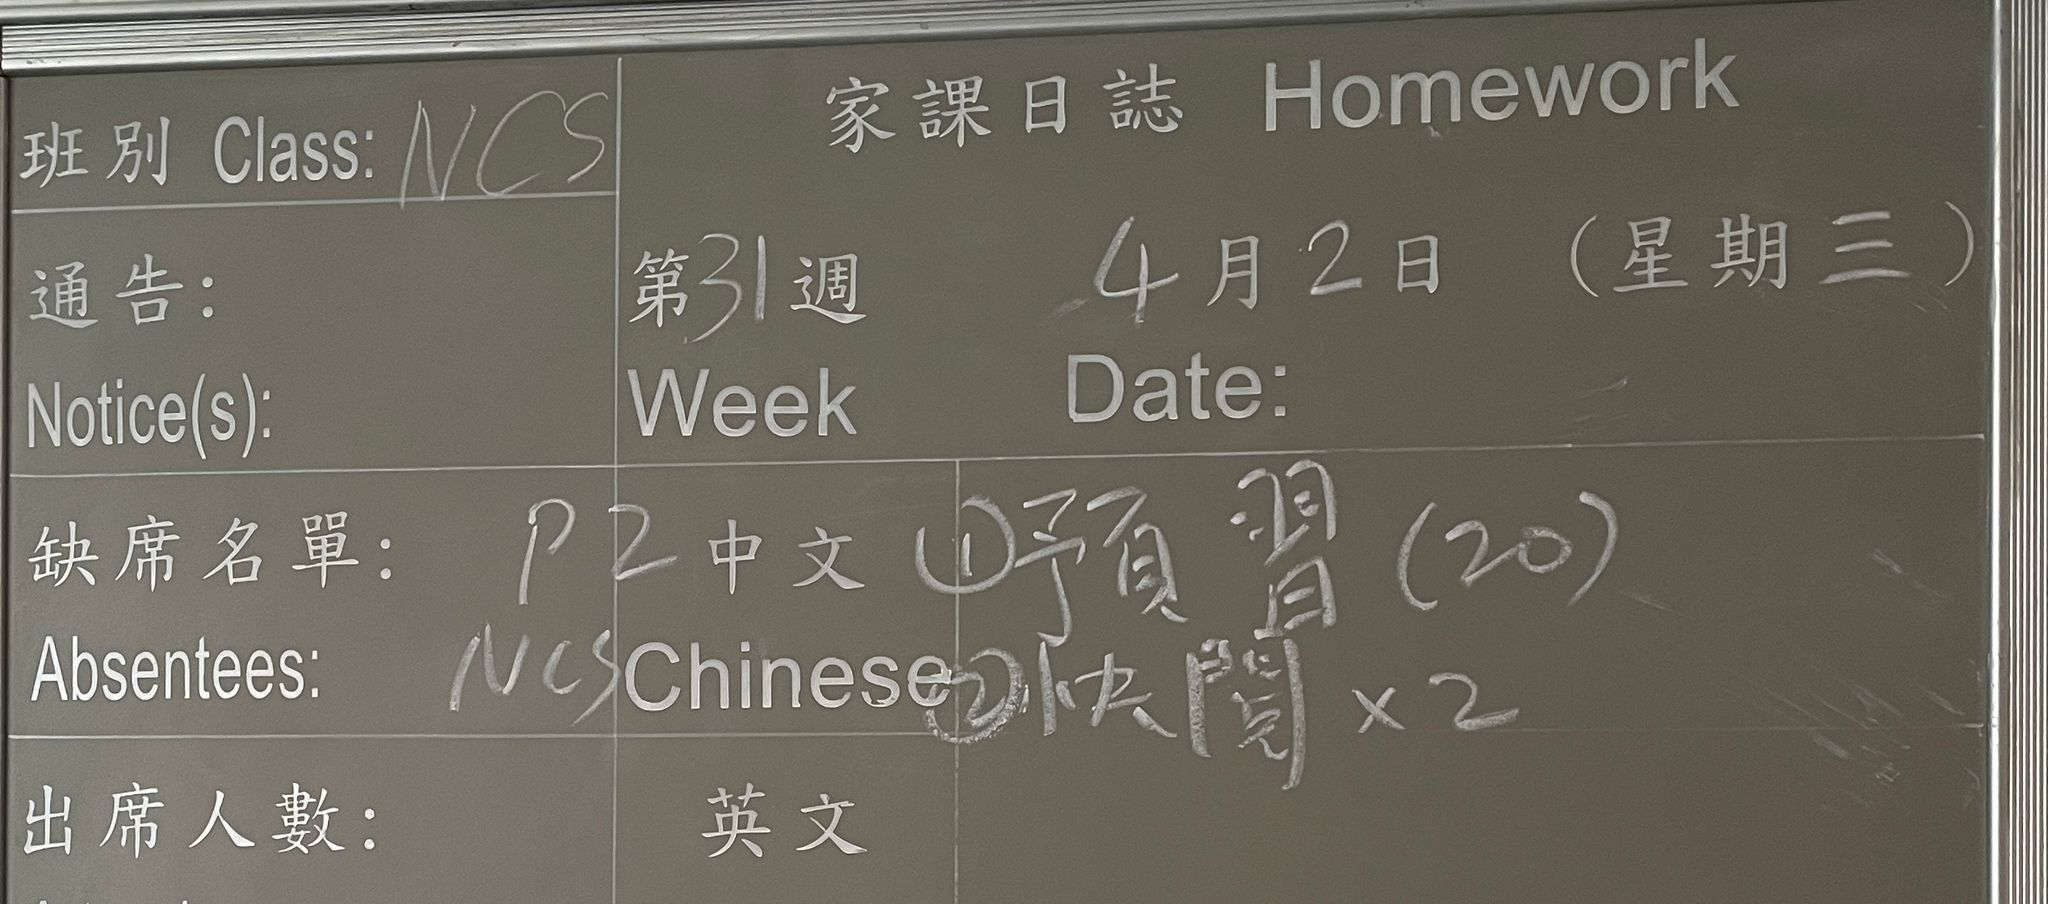 班別 Class: NCS
家課日誌 Homework
通告:
Notice(s):
第31週 4月2日 (星期三)
Week Date:
缺席名單:
Absentees:
P2 中文 ①預習(20)
NCS Chinese ②快閱×2
出席人數:
英文